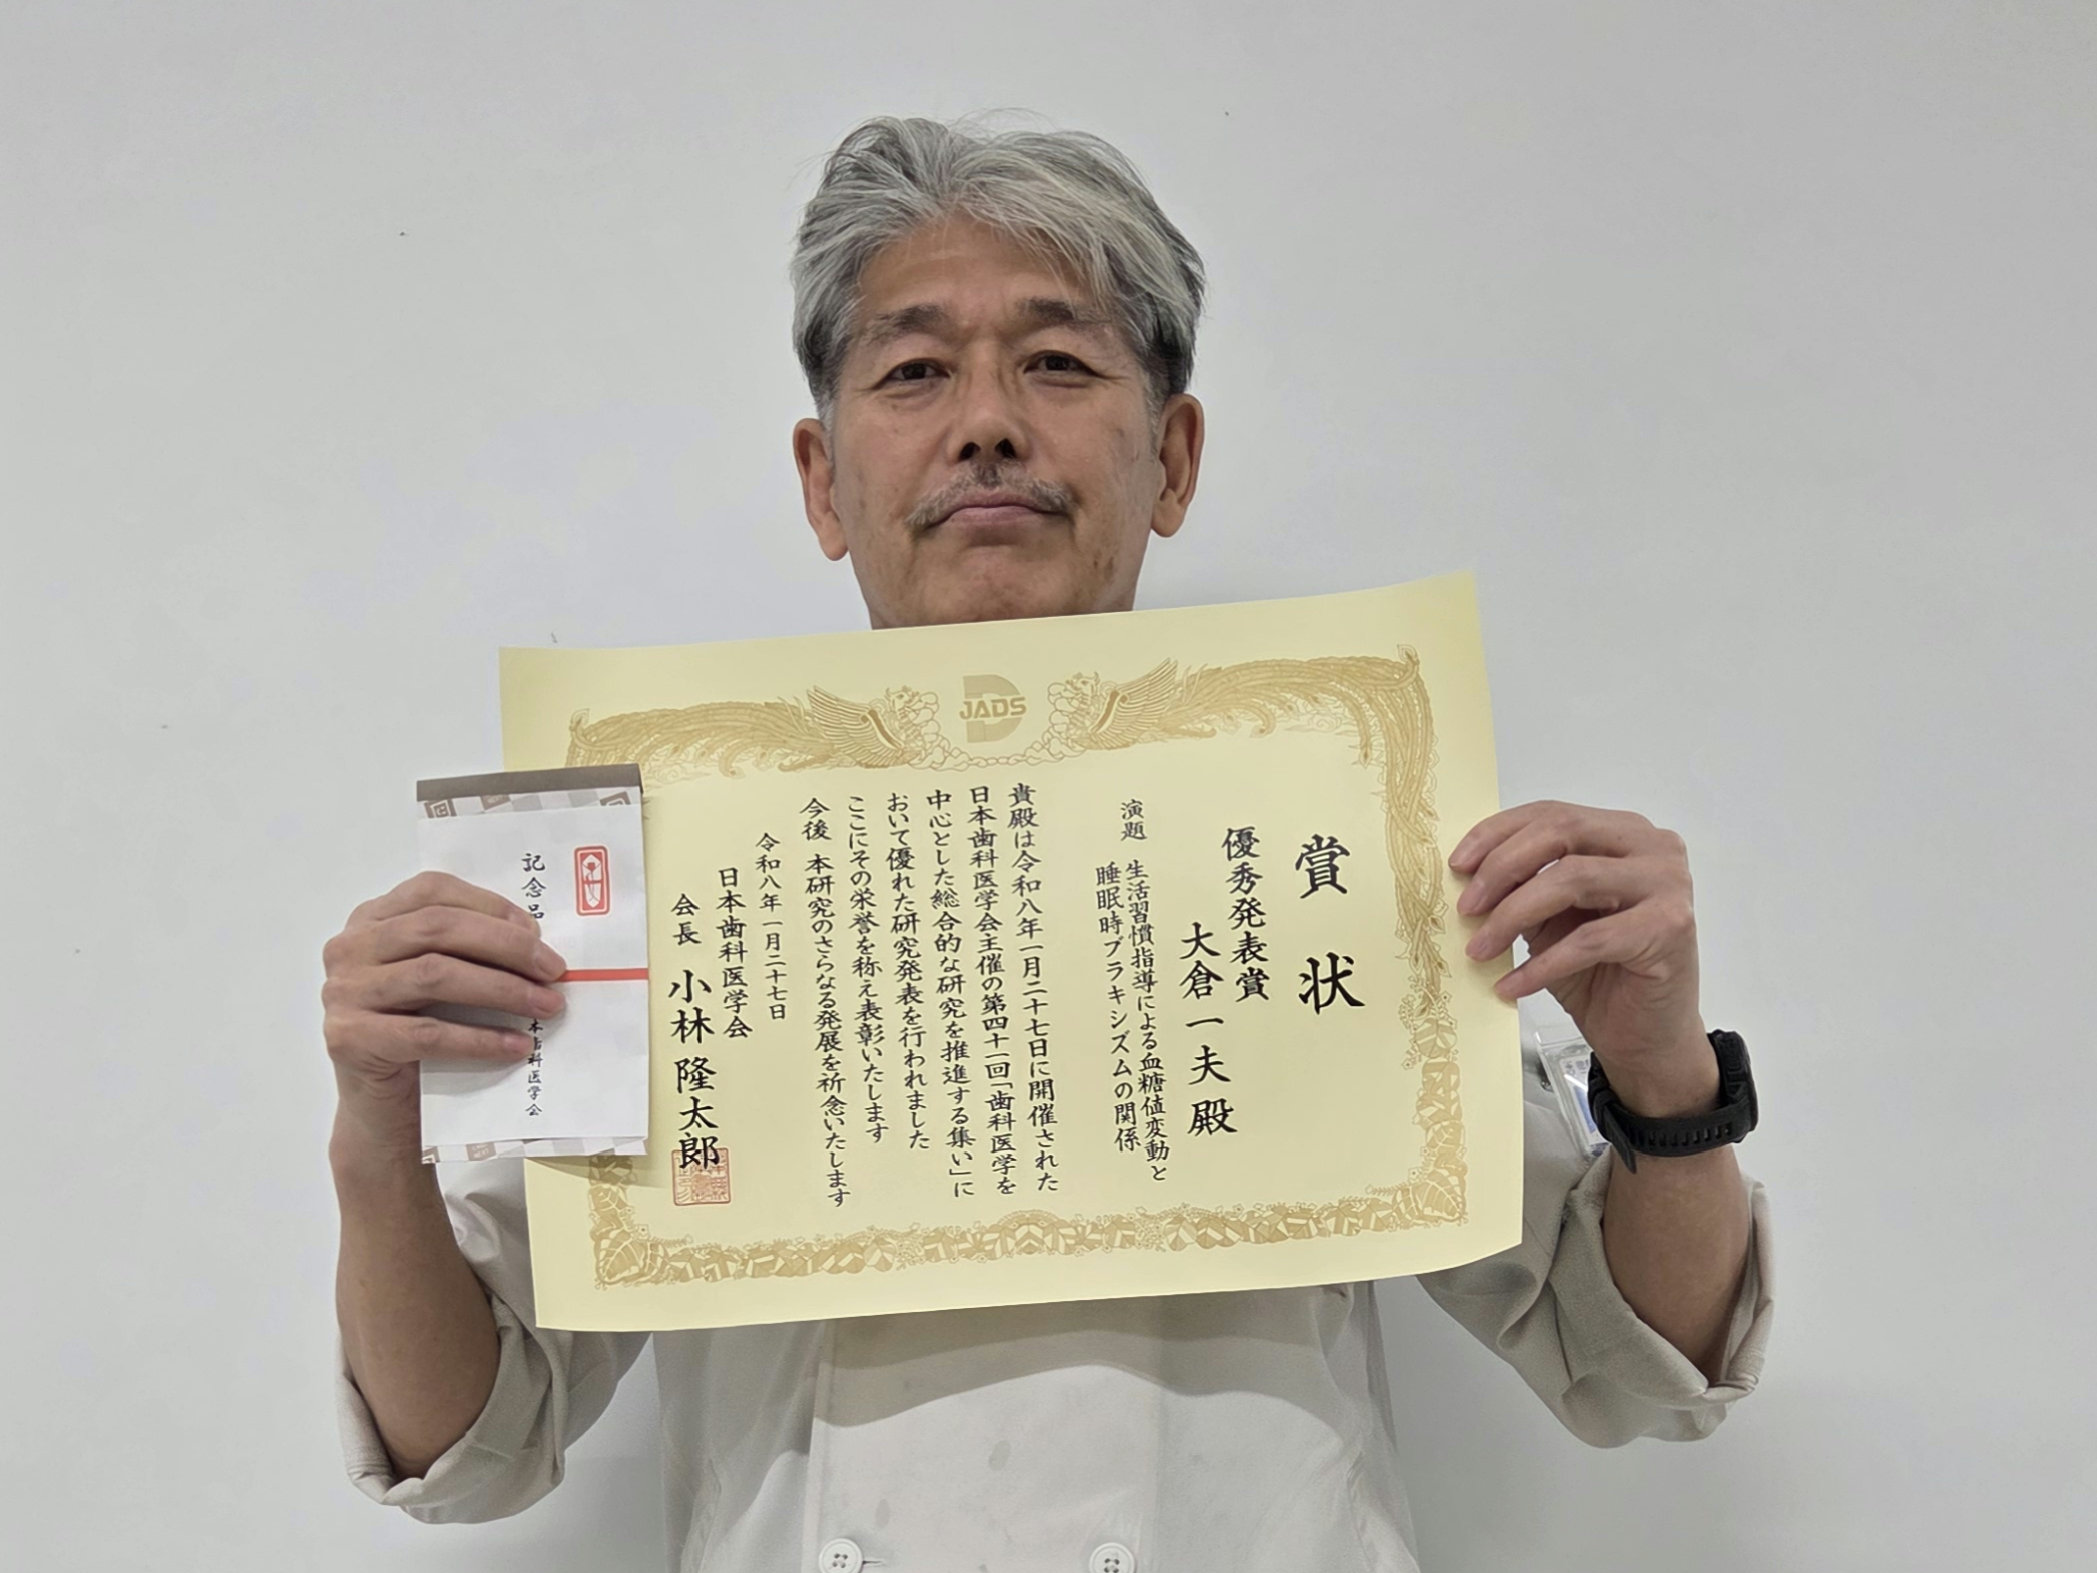 JADS
賞状
優秀発表賞
大倉一夫殿
演題 生活習慣指導による血糖値変動と
睡眠時ブラキシズムの関係
貴殿は令和八年一月二十七日に開催された
日本歯科医学会主催の第四十一回「歯科医学を
中心とした総合的な研究を推進する集い」に
おいて優れた研究発表を行われました
ここにその栄誉を称え表彰いたします
今後 本研究のさらなる発展を祈念いたします
令和八年一月二十七日
日本歯科医学会
会長 小林隆太郎
記念品
本歯科医学会